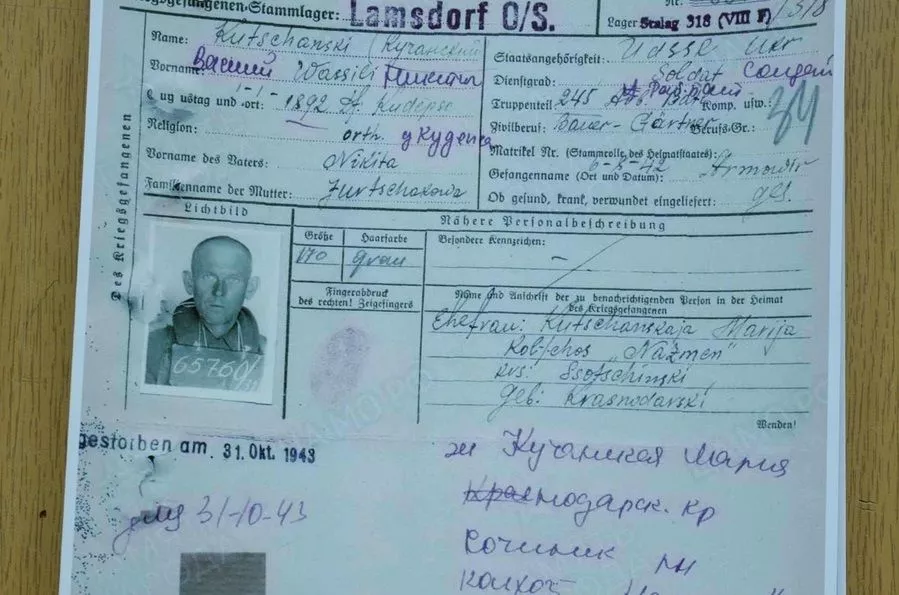 Kriegsgefangenen-Stammlager: Lamsdorf O/S.
Nr.
Lager Stalag 318 (VIII F) /318
Des Kriegsgefangenen
Name: Kutschanski (Кучанский
Vorname: Василий Wassili
1892 Df. Kudepso
Religion: orth. д Кудепса
Vorname des Vaters: Nikita
Familienname der Mutter:
Staatsangehörigkeit: Udssr Ukr
Dienstgrad: Soldat Солдат
Truppenteil: 245 Komp. usw.:
Zivilberuf: Bauer-Gärtner Berufs-Gr.: 34
Matrikel Nr. (Stammrolle des Heimatstaates):
Gefangenname (Ort und Datum): 6-3-42
Ob gesund, krank, verwundet eingeliefert: ges.
Lichtbild
65760/
Nähere Personalbeschreibung
Größe Haarfarbe Besondere Kennzeichen:
170 grau —
Fingerabdruck
des rechten! Zeigefingers
Name und Anschrift der zu benachrichtigenden Person in der Heimat
des Kriegsgefangenen
Ehefrau: Kutschanskaja Marija
Kolchos "Nazmen"
krs: Ssotschinski
Geb: Krasnodarski
Wenden!
gestorben am. 31. Okt. 1943
31-10-43
ж Кучанская Мария
Краснодарск. кр
Сочинск рн
колхоз